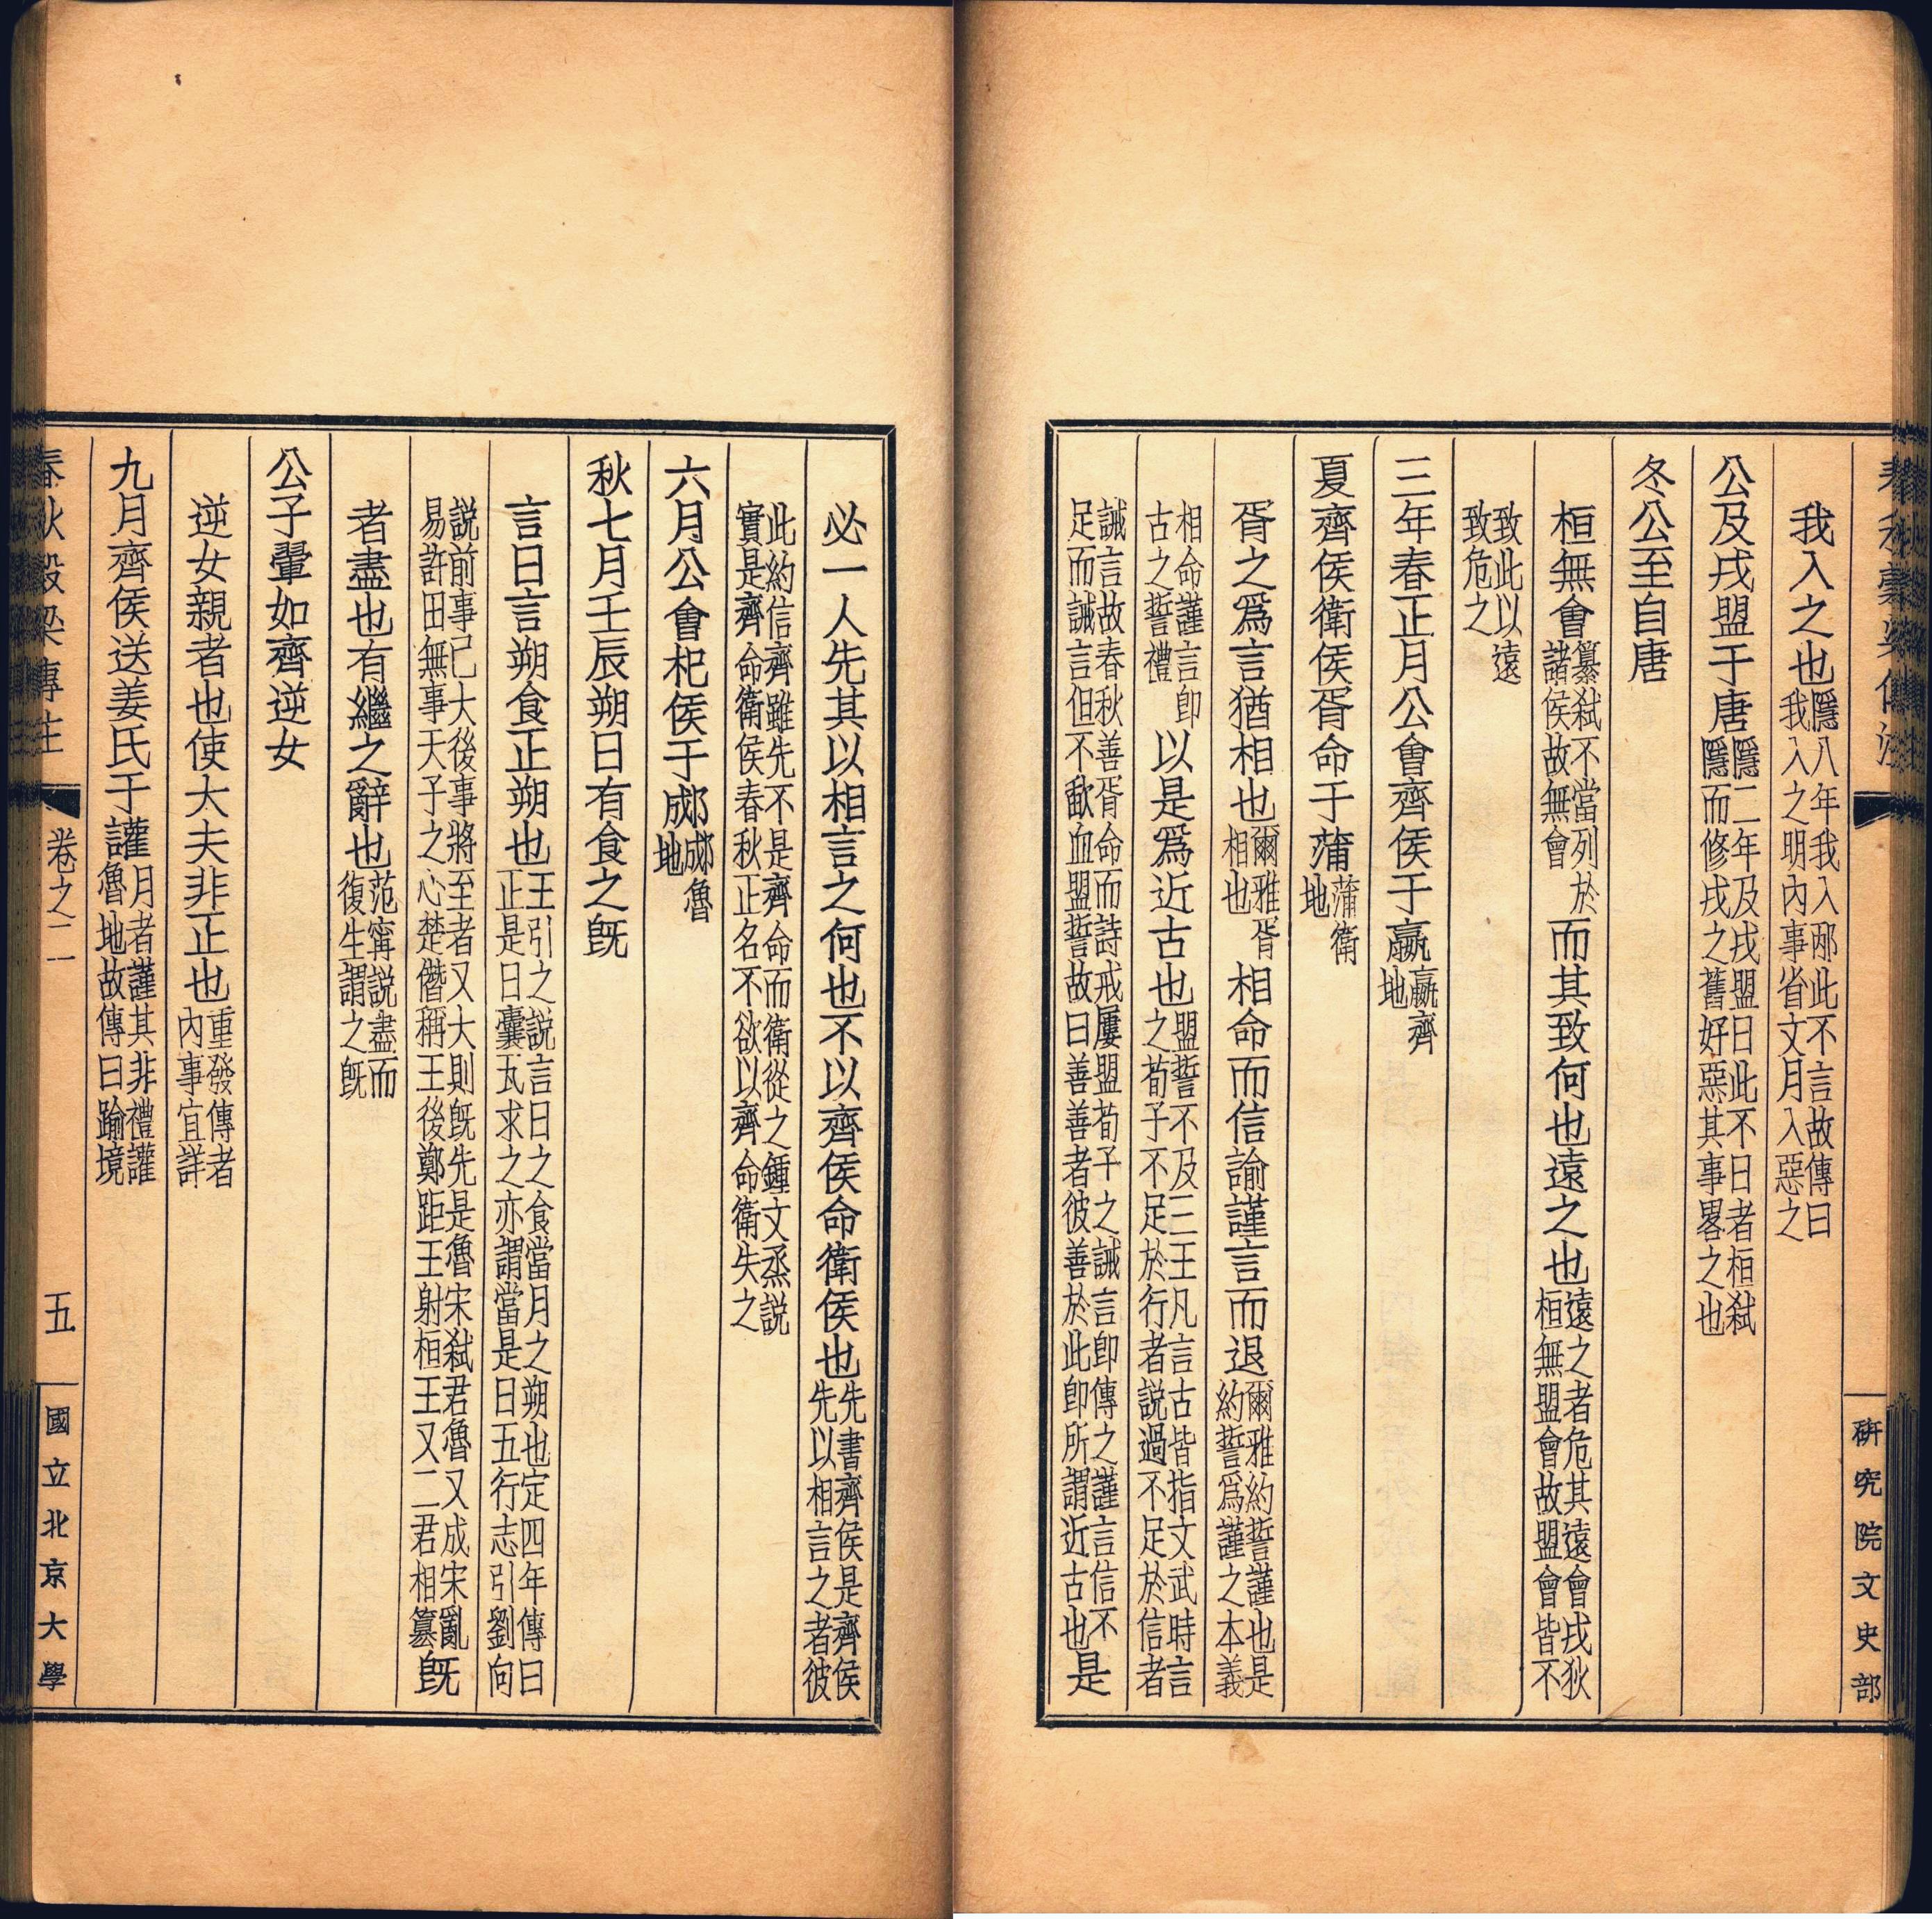 春秋穀梁傳注
研究院文史部
我入之也隱八年我入邴此不言故傳曰
我入之明內事省文月入惡之
公及戎盟于唐隱二年及戎盟日此不日者桓弒
隱而修戎之舊好惡其事畧之也
冬公至自唐
桓無會篡弒不當列於
諸侯故無會而其致何也遠之也遠之者危其遠會戎狄
桓無盟會故盟會皆不
致此以遠
致危之
三年春正月公會齊侯于嬴嬴齊
地
夏齊侯衛侯胥命于蒲蒲衛
地
胥之爲言猶相也爾雅胥
相也相命而信諭謹言而退爾雅約誓謹也是
約誓爲謹之本義
相命謹言即
古之誓禮以是爲近古也盟誓不及三王凡言古皆指文武時言
之荀子不足於行者說過不足於信者
誠言故春秋善胥命而詩戒屢盟荀子之誠言即傳之謹言信不
足而誠言但不歃血盟誓故曰善善者彼善於此即所謂近古也是
必一人先其以相言之何也不以齊侯命衛侯也先書齊侯是齊侯
先以相言之者彼
此約信齊雖先不是齊命而衛從之鍾文烝說
實是齊命衛侯春秋正名不欲以齊命衛失之
六月公會杞侯于郕郕魯
地
秋七月壬辰朔日有食之既
言日言朔食正朔也王引之說言日之食當月之朔也定四年傳曰
正是日囊瓦求之亦謂當是日五行志引劉向
說前事已大後事將至者又大則既先是魯宋弒君魯又成宋亂
易許田無事天子之心楚僭稱王後鄭距王射桓王又二君相篡既
者盡也有繼之辭也范甯說盡而
復生謂之既
公子翬如齊逆女
逆女親者也使大夫非正也重發傳者
內事宜詳
九月齊侯送姜氏于讙月者謹其非禮讙
魯地故傳曰踰境
春秋穀梁傳注
卷之二
五
國立北京大學